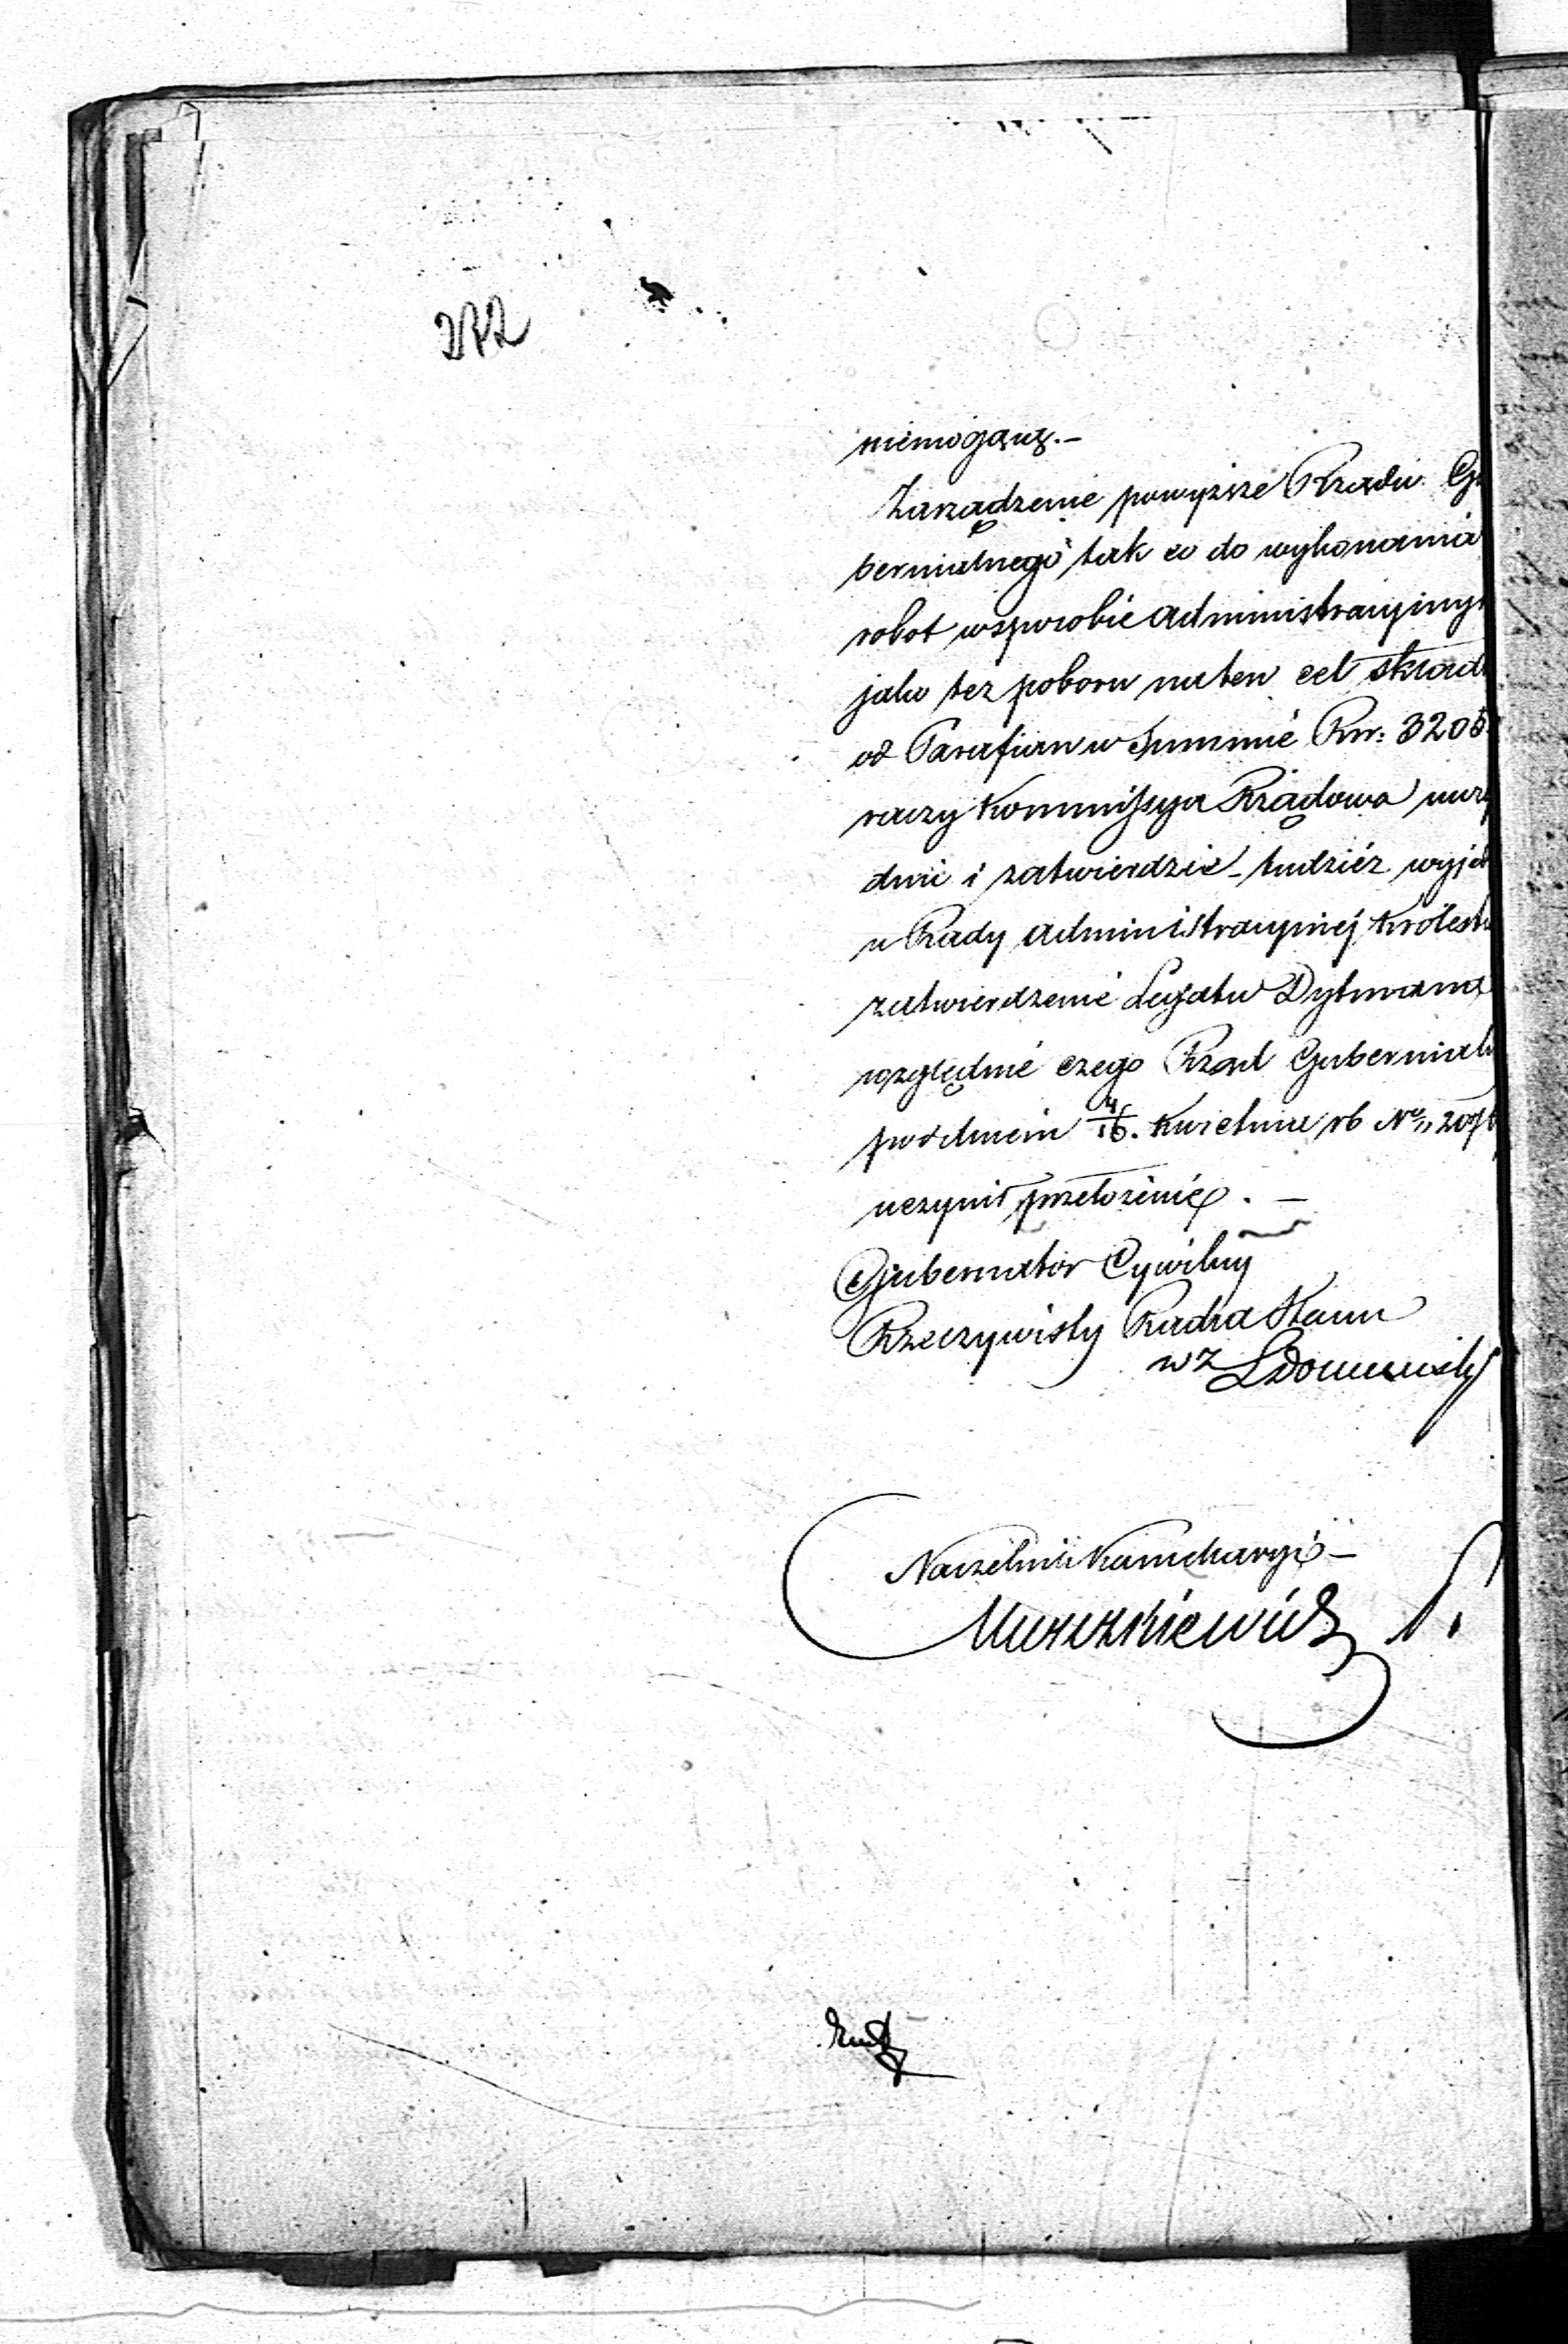 272
niemogącą.—
Zarządzenie powyższe Rządu Gu
bernialnego tak co do wykonania
robot wsposobie administracyjnym
jako też poboru na ten cel składk
od Parafian w Summie Rsr: 3205
raczy Kommissya Rządowa uzasa
dnić i zatwierdzić - tudzież wyjedn
u Rady Administracyjnej Królestw
zatwierdzenie Legatu Dytmana
względnie czego Rząd Gubernialn
pod dniem 4/16. Kwietnia rb No
uczynił przełożenie. —
Gubernator Cywilny
Rzeczywisty Radca Stanu
wz
Naczelnik Kancellaryi —